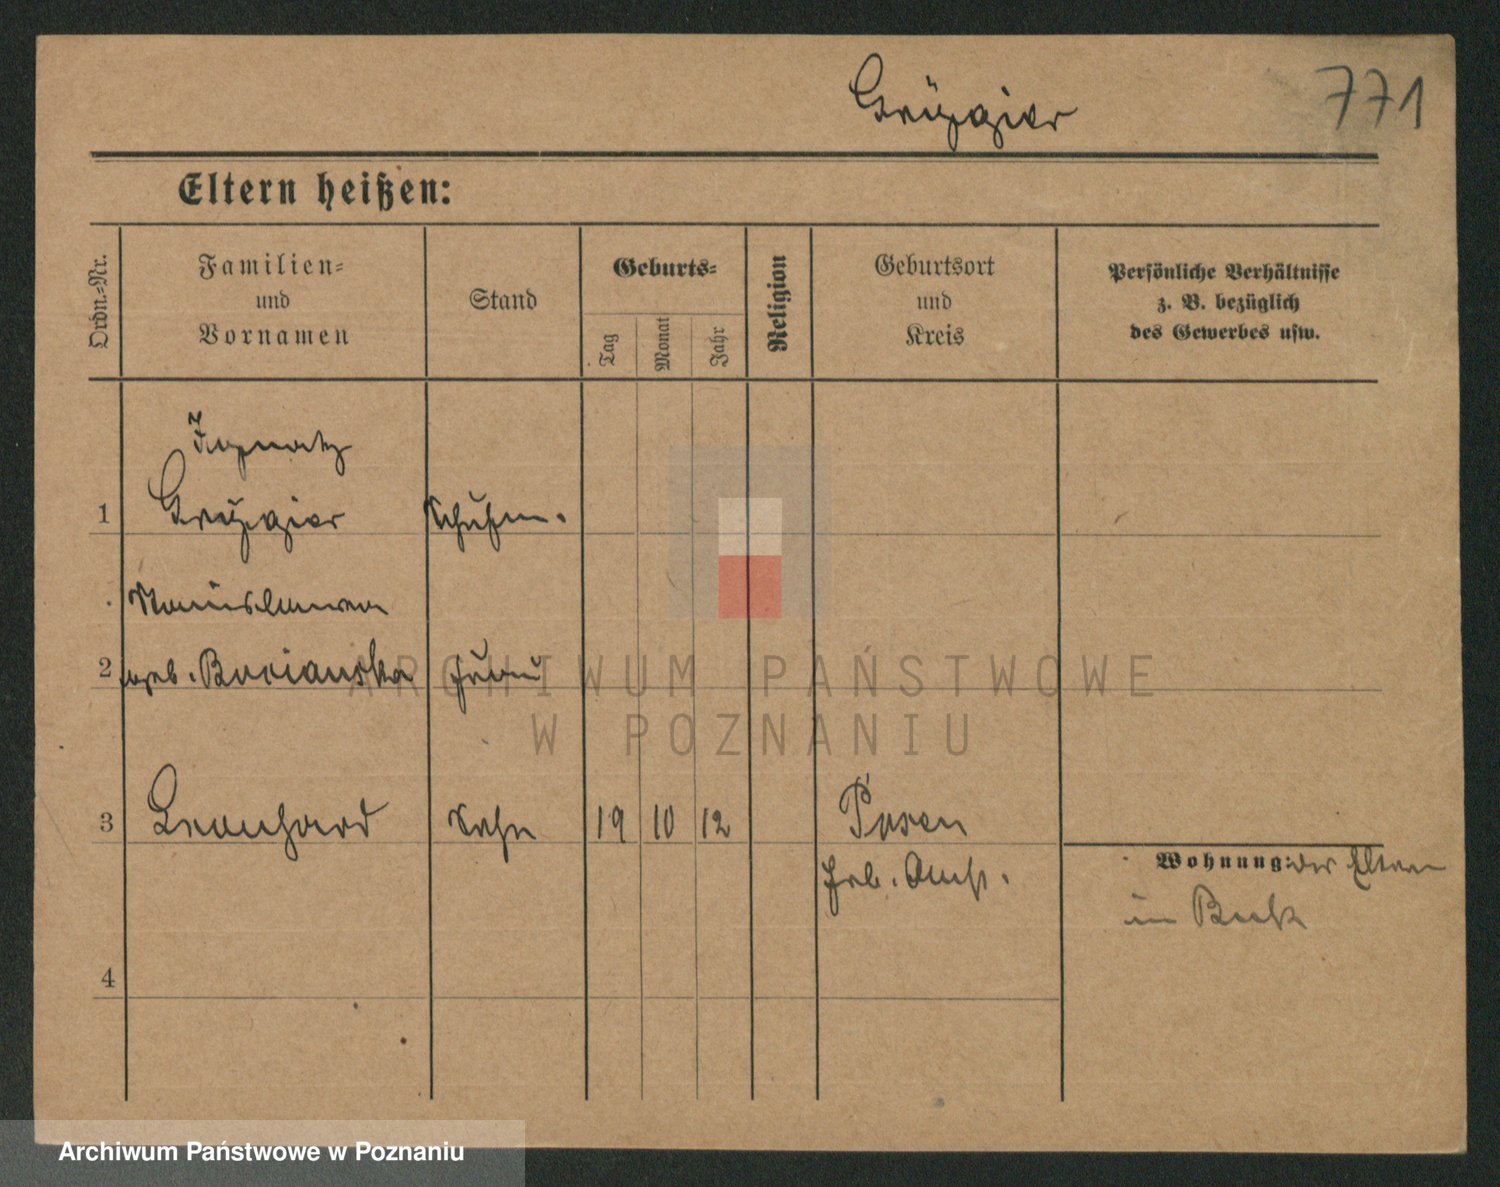 771
Eltern heißen:
Ordn.-Nr.
Familien-
und
Vornamen
Stand
Geburts-
Tag
Monat
Jahr
Religion
Geburtsort
und
Kreis
Persönliche Verhältnisse
z. B. bezüglich
des Gewerbes usw.
Ignatz
1 Schuhm.
Stanislawa
2 geb. Bocianska Frau
3 Leonhard Sohn 19 10 12 Posen
Wohnung: der Eltern
in Buk
4
ARCHIWUM PAŃSTWOWE
W POZNANIU
Archiwum Państwowe w Poznaniu